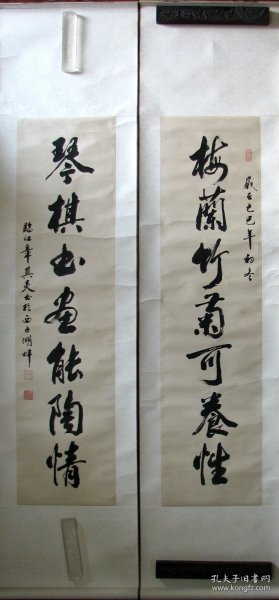 梅蘭竹菊可養性
歲在己巳年初冬
琴棋書畫能陶情
臨江章其炎書於西子湖畔
孔夫子旧书网
www.kongfz.com